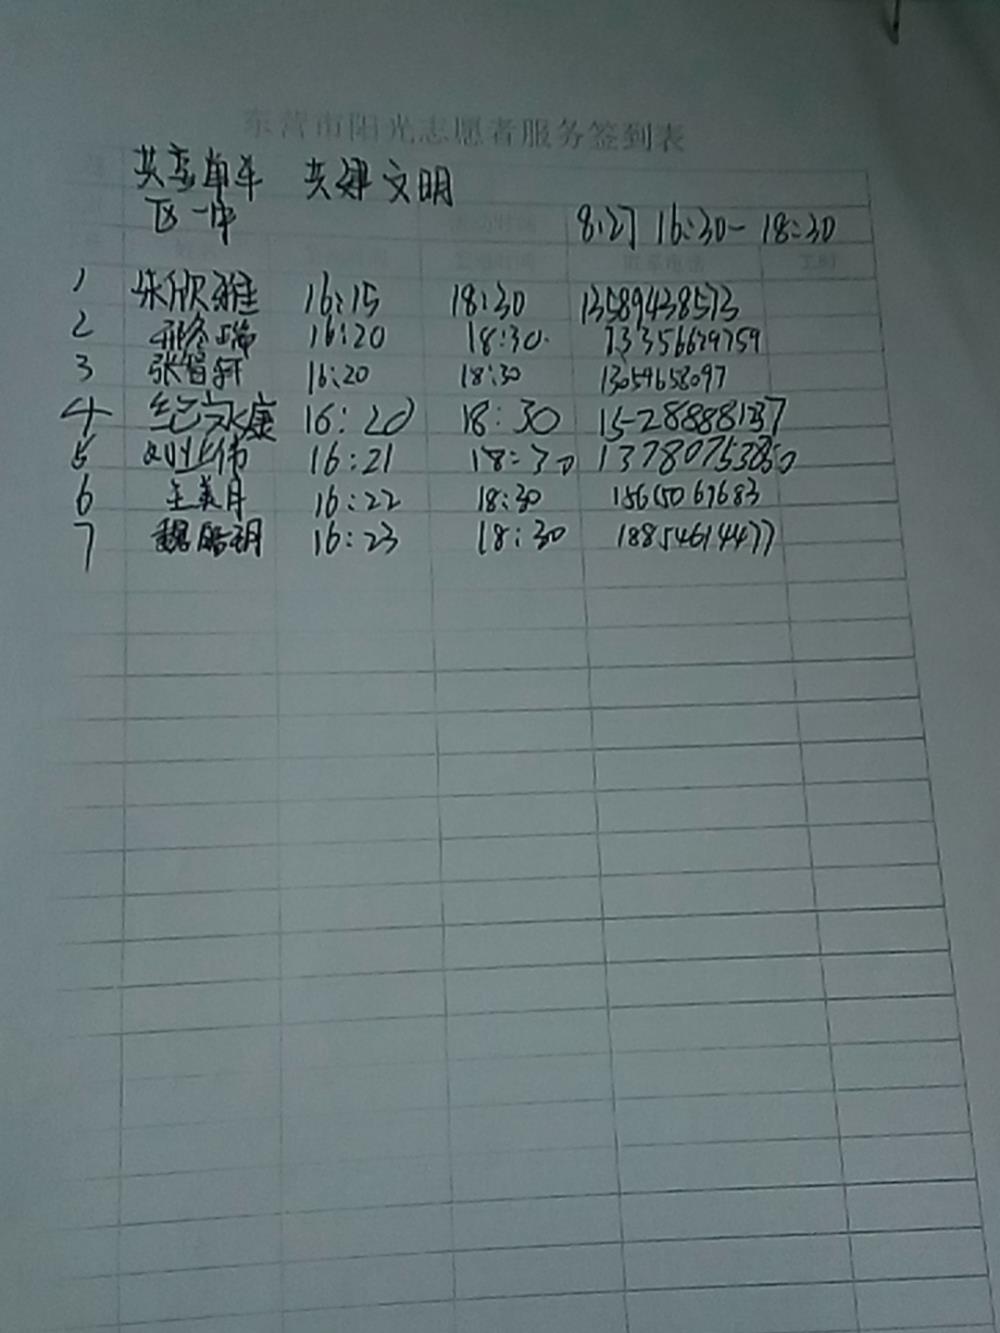 东营市阳光志愿者服务签到表
共享单车 共建文明
区一中 8.27 16:30-18:30
姓名 联系电话 工时
1 朱欣雅 16:15 18:30 13589438573
2 邢冬瑞 16:20 18:30 13356629759
3 张智轩 16:20 18:30 13054658097
4 纪永康 16:20 18:30 1528888137
5 刘业伟 16:21 18:30 13780753850
6 王美月 16:22 18:30 15615067683
7 魏皓玥 16:23 18:30 18854614477